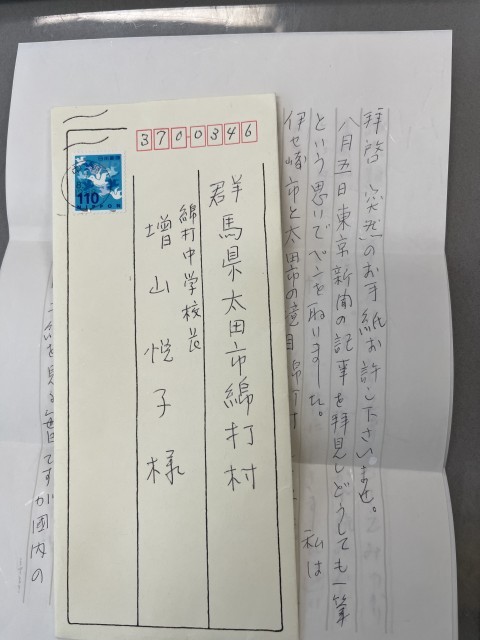 3700346
日本郵便
110
群馬県太田市綿打村
綿打中学校長
増山悦子様
拝啓 突然のお手紙お許し下さいませ。
八月五日東京新聞の記事を拝見しどうしても一筆
という思いでペンを取りました。 私は
伊セ崎市と太田市の境目
毎日ですが国内の